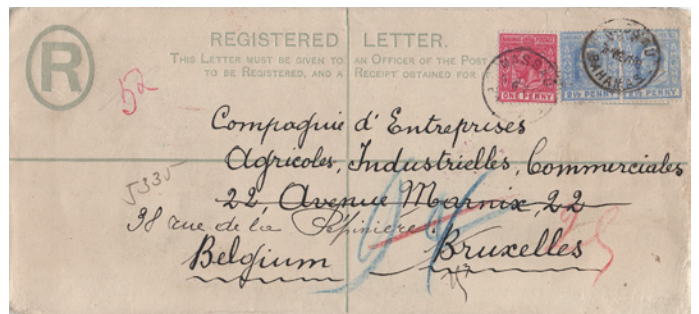 R
REGISTERED LETTER.
THIS LETTER MUST BE GIVEN TO AN OFFICER OF THE POST
TO BE REGISTERED, AND A RECEIPT OBTAINED FOR
NASSAU
BAHAMAS
ONE PENNY
2½ PENNY 2½ PENNY
52
Compagnie d'Entreprises
Agricoles, Industrielles, Commerciales
5335
22, Avenue Marnix, 22
38 rue de la Pépinière.
Belgium Bruxelles